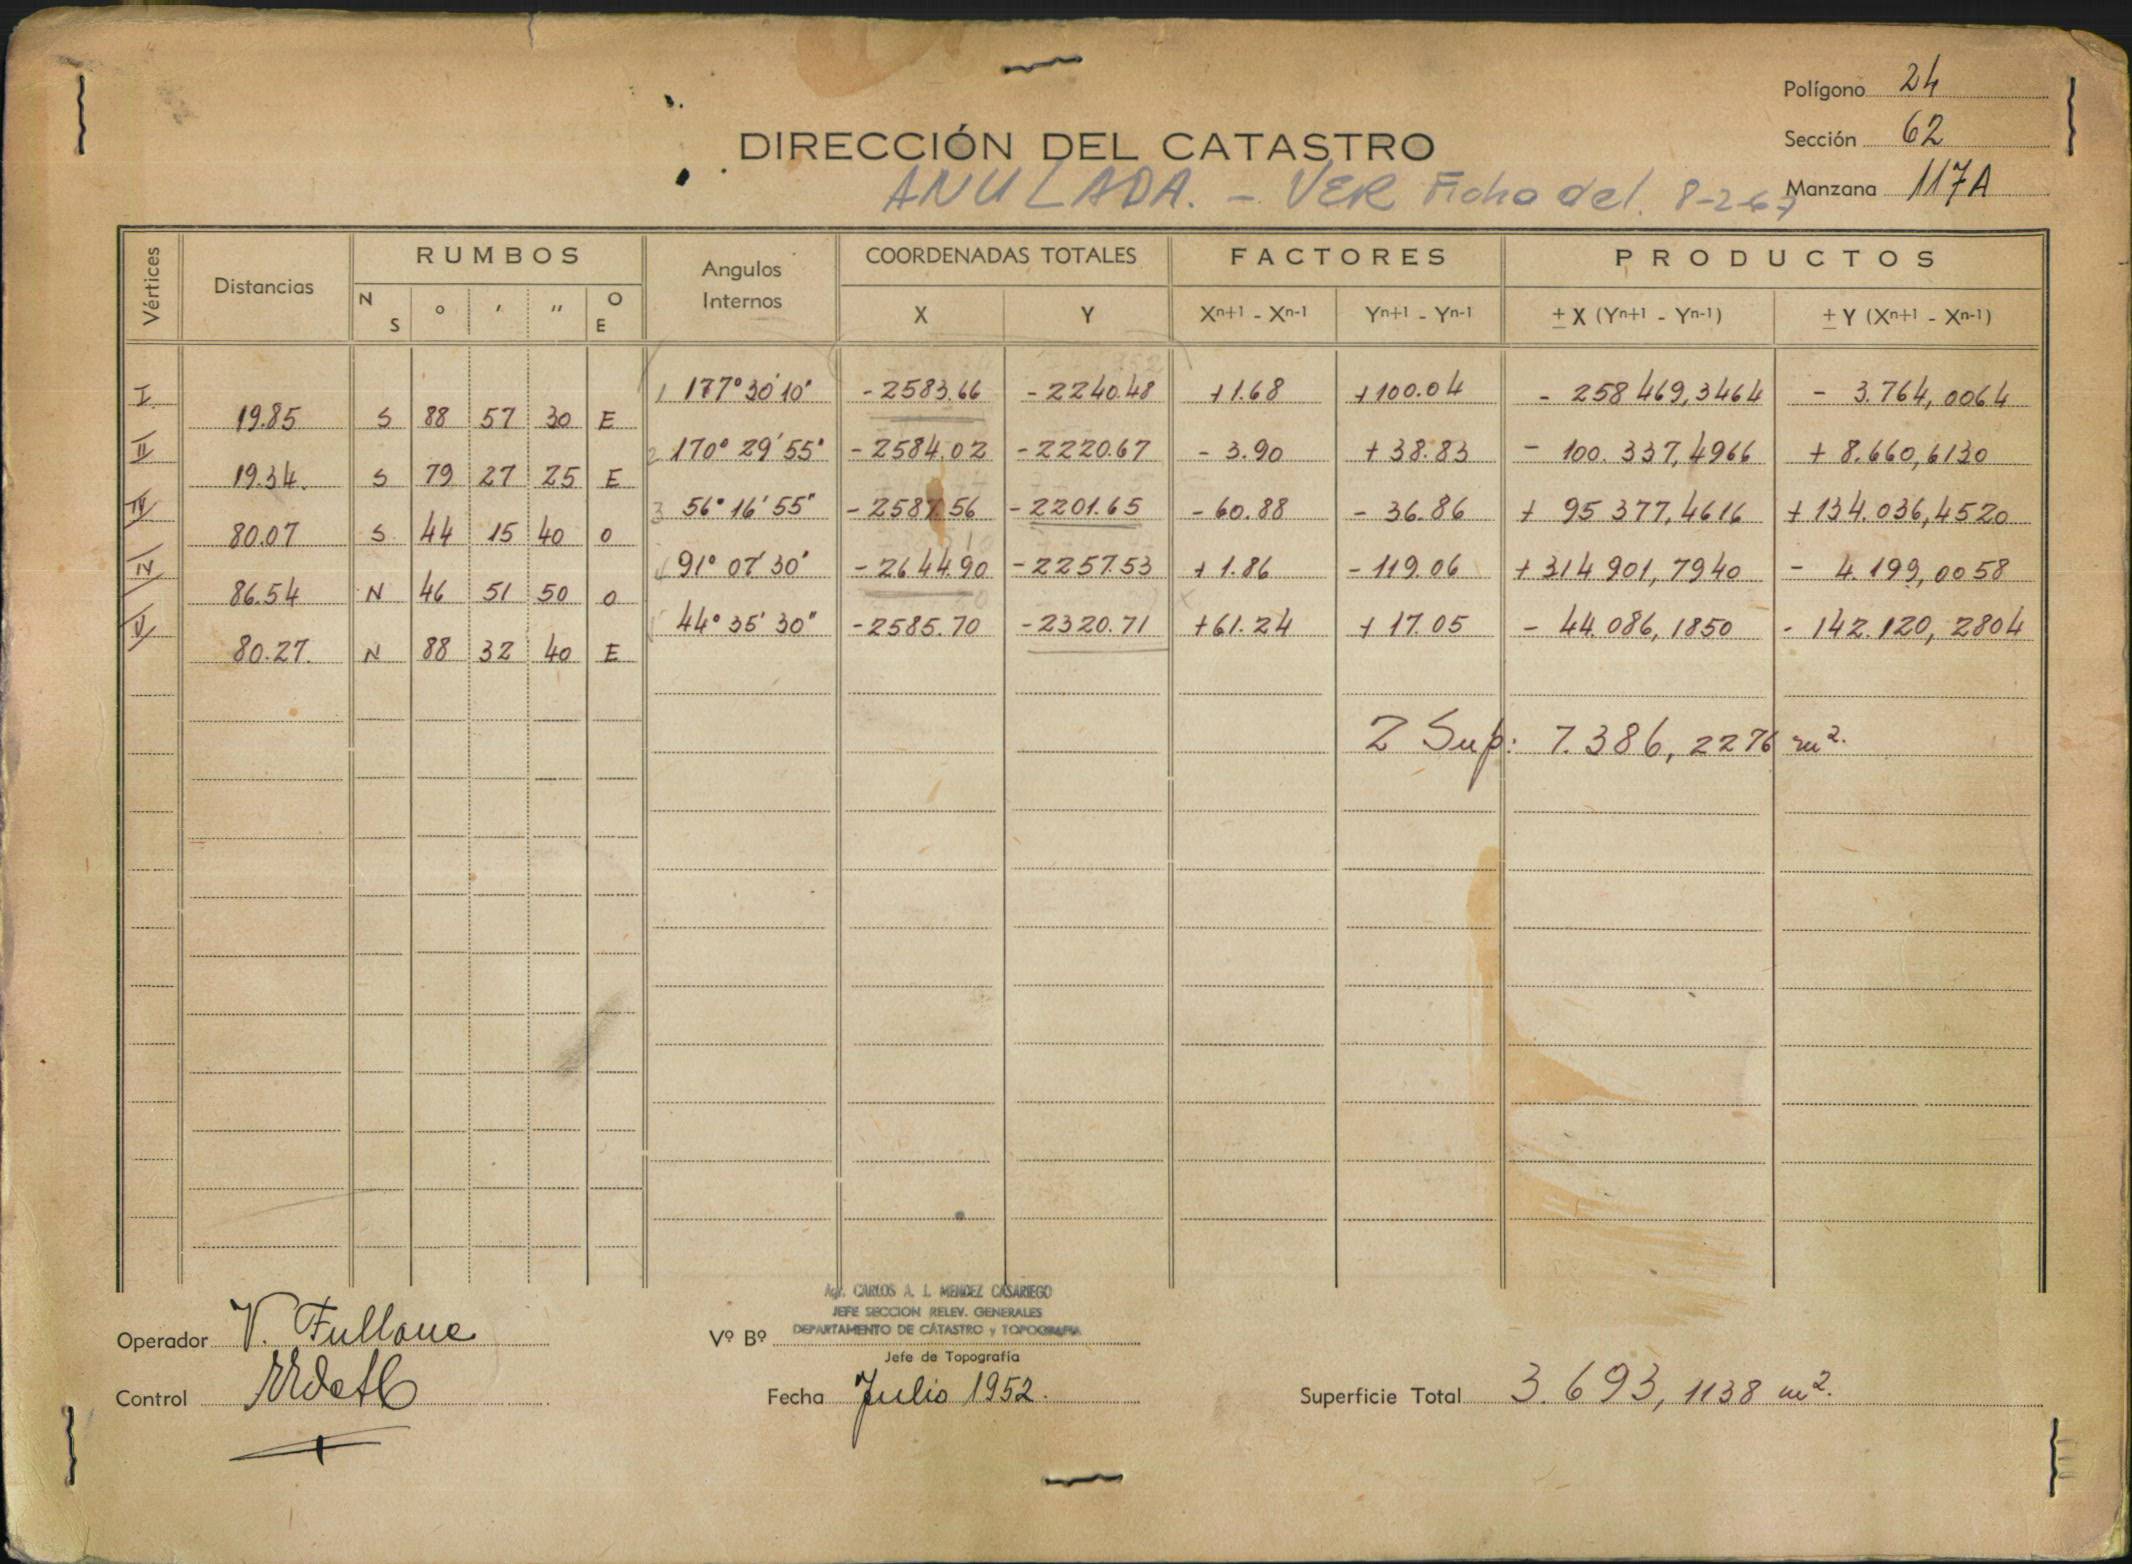 Polígono 24
DIRECCIÓN DEL CATASTRO
Sección 62
ANULADA. - VER Ficha del. 8-2-67
Manzana 117A
Vértices Distancias RUMBOS Angulos Internos COORDENADAS TOTALES FACTORES PRODUCTOS
N S ° ' '' O E X Y Xn+1 - Xn-1 Yn+1 - Yn-1 ± X (Yn+1 - Yn-1) ± Y (Xn+1 - Xn-1)
I 1 177° 30' 10" - 2583.66 - 2240.48 + 1.68 + 100.04 - 258 469,3464 - 3.764,0064
19.85 S 88 57 30 E
II 2 170° 29' 55" - 2584.02 - 2220.67 - 3.90 + 38.83 - 100.337,4966 + 8.660,6130
19.34. S 79 27 25 E
IV 3 56° 16' 55" - 2587.56 - 2201.65 - 60.88 - 36.86 + 95 377,4616 + 134.036,4520
80.07 S. 44 15 40 O
IV 91° 07' 30" - 2644.90 - 2257.53 + 1.86 - 119.06 + 314 901,7940 - 4.199,0058
86.54 N 46 51 50 O
V 44° 35' 30" - 2585.70 - 2320.71 + 61.24 + 17.05 - 44.086,1850 - 142.120,2804
80.27. N 88 32 40 E
2 Sup: 7.386,2276 m².
Agr. CARLOS A. L. MENDEZ CASARIEGO
JEFE SECCION RELEV. GENERALES
DEPARTAMENTO DE CATASTRO y TOPOGRAFIA
Operador V. Fullana Vº Bº
Jefe de Topografía
Control Fecha Julio 1952. Superficie Total 3.693,1138 m².